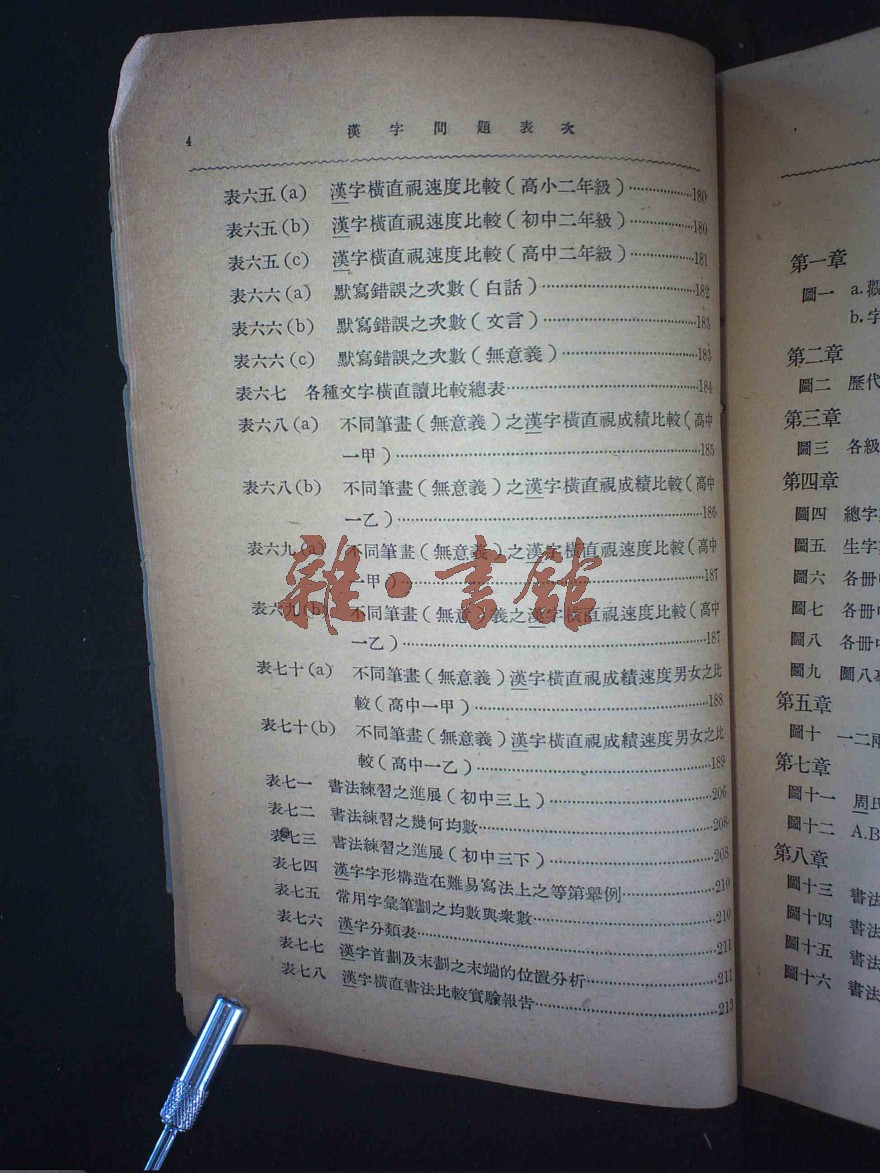 4
漢字問題表次
表六五(a) 漢字橫直視速度比較(高小二年級)………………180
表六五(b) 漢字橫直視速度比較(初中二年級)………………180
表六五(c) 漢字橫直視速度比較(高中二年級)………………181
表六六(a) 默寫錯誤之次數(白話)………………182
表六六(b) 默寫錯誤之次數(文言)………………183
表六六(c) 默寫錯誤之次數(無意義)………………183
表六七 各種文字橫直讀比較總表………………184
表六八(a) 不同筆畫(無意義)之漢字橫直視成績比較(高中
一甲)………………185
表六八(b) 不同筆畫(無意義)之漢字橫直視成績比較(高中
一乙)………………186
表六九(a) 不同筆畫(無意義)之漢字橫直視速度比較(高中
一甲)………………187
表六九(b) 不同筆畫(無意)義之漢字橫直視速度比較(高中
一乙)………………187
表七十(a) 不同筆畫(無意義)漢字橫直視成績速度男女之比
較(高中一甲)………………188
表七十(b) 不同筆畫(無意義)漢字橫直視成績速度男女之比
較(高中一乙)………………189
表七一 書法練習之進展(初中三上)………………206
表七二 書法練習之幾何均數………………208
表七三 書法練習之進展(初中三下)………………208
表七四 漢字字形構造在難易寫法上之等第舉例………………210
表七五 常用字彙筆劃之均數與衆數………………210
表七六 漢字分類表………………211
表七七 漢字首劃及末劃之末端的位置分析………………211
表七八 漢字橫直書法比較實驗報告………………213
雜·書館
第一章
圖一 a.觀
b.字
第二章
圖二 歷代
第三章
圖三 各級
第四章
圖四 總字
圖五 生字
圖六 各册
圖七 各册中
圖八 各册中
圖九 圖八
第五章
圖十 一二兩
第七章
圖十一 周氏
圖十二 A.B
第八章
圖十三 書法
圖十四 書法
圖十五 書法
圖十六 書法